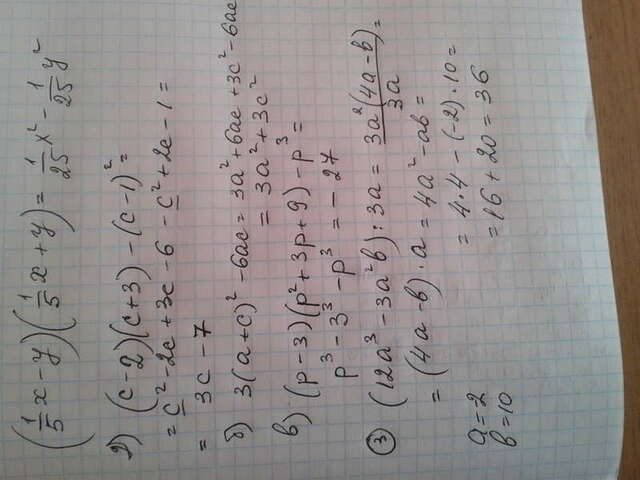 (1/5 x - y)(1/5 x + y) = 1/25 x² - 1/25 y²
2) (c-2)(c+3) - (c-1)² =
= c² - 2c + 3c - 6 - c² + 2c - 1 =
= 3c - 7
б) 3(a+c)² - 6ac = 3a² + 6ac + 3c² - 6ac
= 3a² + 3c²
в) (p-3)(p² + 3p + 9) - p³ =
p³ - 3³ - p³ = - 27
③ (12a³ - 3a²b) : 3a = 3a²(4a-b)/3a =
= (4a-b) · a = 4a² - ab =
a=2 = 4·4 - (-2)·10 =
b=10 = 16 + 20 = 36